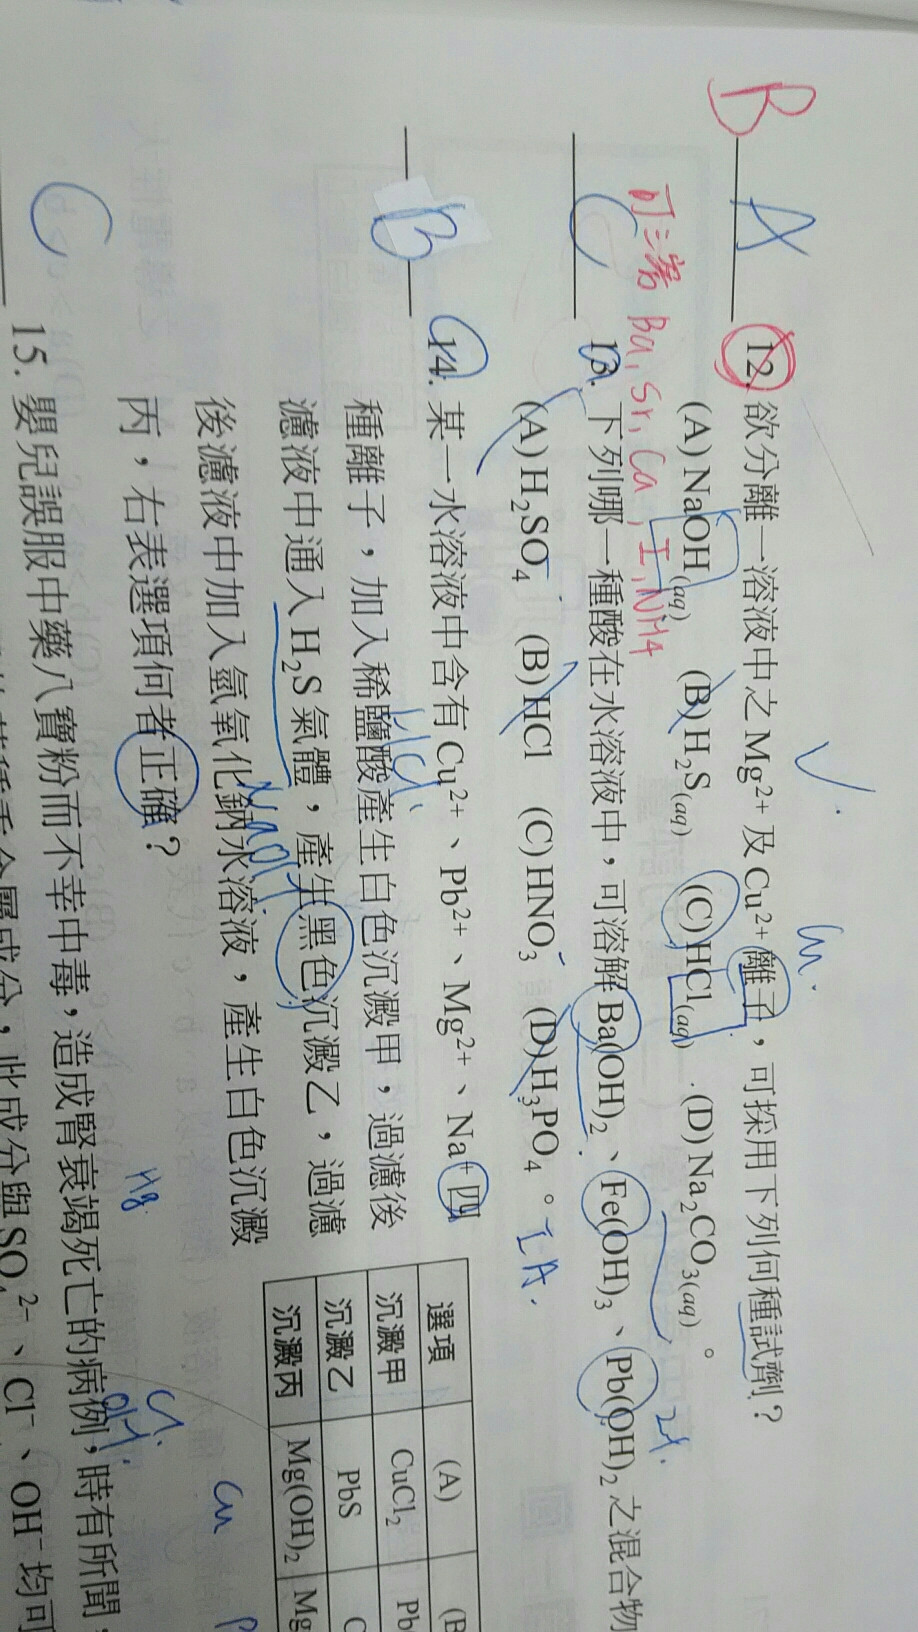 B A 12. 欲分離一溶液中之Mg²⁺及Cu²⁺離子，可採用下列何種試劑？
(A) NaOH(aq) (B) H₂S(aq) (C) HCl(aq) (D) Na₂CO₃(aq)。
可溶 Ba, Sr, Ca, I, NH4
C 13. 下列哪一種酸在水溶液中，可溶解Ba(OH)₂、Fe(OH)₃、Pb(OH)₂之混合物
(A) H₂SO₄ (B) HCl (C) HNO₃ (D) H₃PO₄。IA.
B 14. 某一水溶液中含有Cu²⁺、Pb²⁺、Mg²⁺、Na⁺四
種離子，加入稀鹽酸產生白色沉澱甲，過濾後
HCl
濾液中通入H₂S氣體，產生黑色沉澱乙，過濾
後濾液中加入氫氧化鈉水溶液，產生白色沉澱
NaOH
丙，右表選項何者正確？
選項 (A) (B
沉澱甲 CuCl₂ Pb
沉澱乙 PbS C
沉澱丙 Mg(OH)₂ Mg
Cu
Hg
C 15. 嬰兒誤服中藥八寶粉而不幸中毒，造成腎衰竭死亡的病例，時有所聞，
Cl. OH.
重金屬成分，此成分與SO₄²⁻、Cl⁻、OH⁻均可